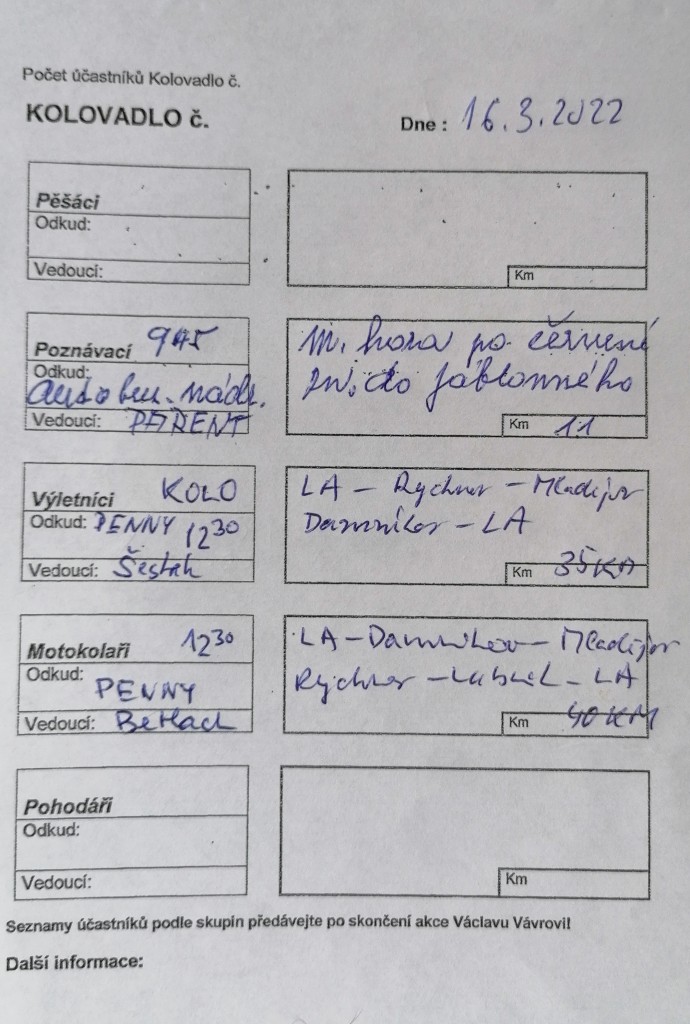 Počet účastníků Kolovadlo č.
KOLOVADLO č.
Dne : 16.3.2022
Pěšáci
Odkud:
Vedoucí:
Km
Poznávací 945
Odkud:
autobu. nádr.
Vedoucí: PARENT
M. hora po červené
zn. do Jablonného
Km 11
Výletníci KOLO
Odkud: PENNY 12 30
Vedoucí: Šesták
LA - Rychnov - Mladějov
Damníkov - LA
Km 35 KM
Motokolaři 12 30
Odkud:
PENNY
Vedoucí: Betlach
LA - Damníkov - Mladějov
Rychnov - - LA
Km 40 KM
Pohodáři
Odkud:
Vedoucí:
Km
Seznamy účastníků podle skupin předávejte po skončení akce Václavu Vávrovi!
Další informace: